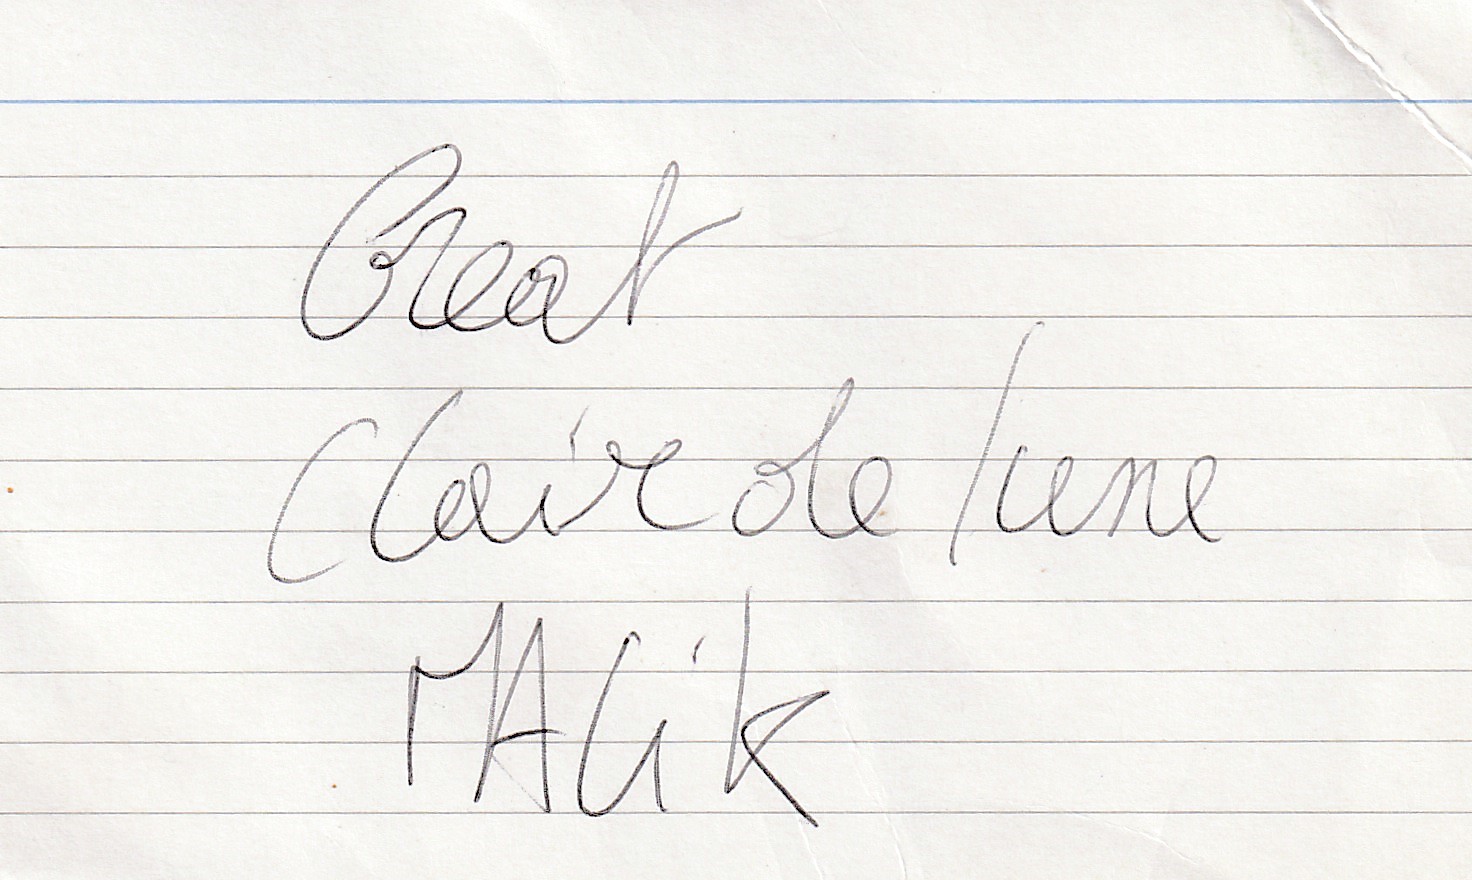 Great
Clair de lune
MALik